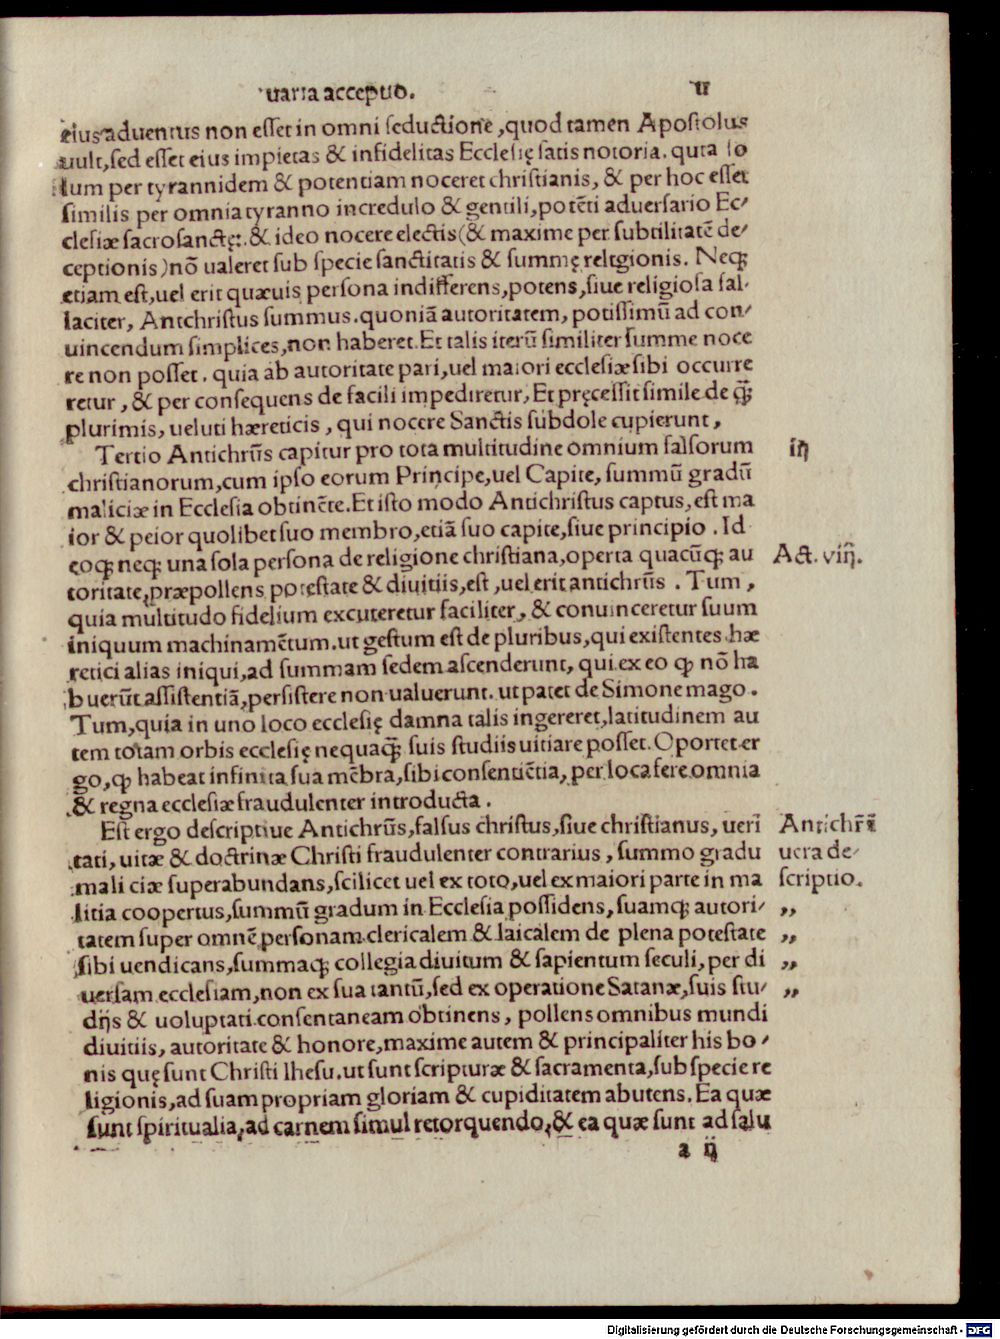 uaria acceptio. II
eius aduentus non esset in omni seductione, quod tamen Apostolus
uult, sed esset eius impietas & infidelitas Ecclesię satis notoria. quia so
lum per tyrannidem & potentiam noceret christianis, & per hoc esset
similis per omnia tyranno incredulo & gentili, potẽti aduersario Ec/
clesiæ sacrosanctę: & ideo nocere electis (& maxime per subtilitatẽ de/
ceptionis) nõ ualeret sub specie sanctitatis & summę religionis. Neq;
etiam est, uel erit quæuis persona indifferens, potens, siue religiosa fal-
laciter, Antchristus summus. quoniã autoritatem, potissimũ ad con/
uincendum simplices, non haberet. Et talis iterũ similiter summe noce
re non posset. quia ab autoritate pari, uel maiori ecclesiæ sibi occurre
retur, & per consequens de facili impediretur, Et pręcessit simile de q̃;
plurimis, ueluti hæreticis, qui nocere Sanctis subdole cupierunt,
Tertio Antichrũs capitur pro tota multitudine omnium falsorum
iij
christianorum, cum ipso eorum Principe, uel Capite, summũ gradũ
maliciæ in Ecclesia obtinẽte. Et isto modo Antichristus captus, est ma
ior & peior quolibet suo membro, etiã suo capite, siue principio. Id
eoq; neq; una sola persona de religione christiana, operta quacũq; au
Act. viij.
toritate, præpollens potestate & diuitiis, est, uel erit antichrũs. Tum,
quia multitudo fidelium excuteretur faciliter, & conuinceretur suum
iniquum machinamẽtum. ut gestum est de pluribus, qui existentes hæ
retici alias iniqui, ad summam sedem ascenderunt, qui ex eo ꝙ nõ ha
buerũt assistentiã, persistere non ualuerunt. ut patet de Simone mago.
Tum, quia in uno loco ecclesię damna talis ingereret, latitudinem au
tem totam orbis ecclesię nequaq̃; suis studiis uitiare posset. Oportet er
go, ꝙ habeat infinita sua mẽbra, sibi consentiẽtia, per loca fere omnia
& regna ecclesiæ fraudulenter introducta.
Est ergo descriptiue Antichrũs, falsus christus, siue christianus, ueri
Antichrĩ
tati, uitæ & doctrinæ Christi fraudulenter contrarius, summo gradu
uera de/
mali ciæ superabundans, scilicet uel ex toto, uel ex maiori parte in ma
scriptio.
litia coopertus, summũ gradum in Ecclesia possidens, suamq; autori/
,,
tatem super omnẽ personam clericalem & laicalem de plena potestate
,,
sibi uendicans, summaq; collegia diuitum & sapientum seculi, per di
,,
uersam ecclesiam, non ex sua tantũ, sed ex operatione Satanæ, suis stu/
,,
dijs & uoluptati consentaneam obtinens, pollens omnibus mundi
diuitiis, autoritate & honore, maxime autem & principaliter his bo/
nis quę sunt Christi Ihesu. ut sunt scripturæ & sacramenta, sub specie re
ligionis, ad suam propriam gloriam & cupiditatem abutens. Ea quæ
sunt spiritualia, ad carnem simul retorquendo, & ea quæ sunt ad salu
a ij
Digitalisierung gefördert durch die Deutsche Forschungsgemeinschaft - DFG